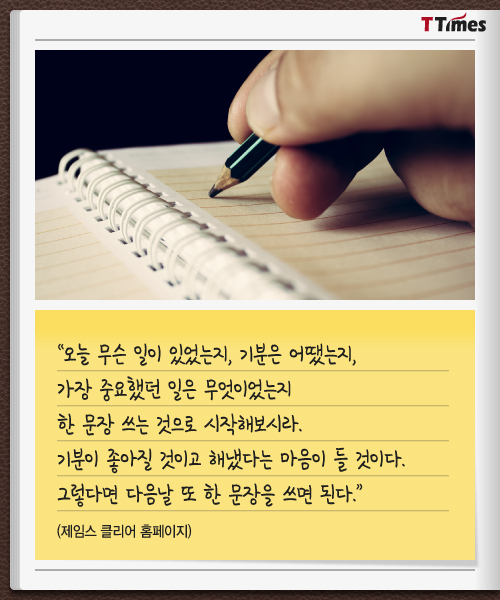 TTimes
“오늘 무슨 일이 있었는지, 기분은 어땠는지,
가장 중요했던 일은 무엇이었는지
한 문장 쓰는 것으로 시작해보시라.
기분이 좋아질 것이고 해냈다는 마음이 들 것이다.
그렇다면 다음날 또 한 문장을 쓰면 된다.”
(제임스 클리어 홈페이지)